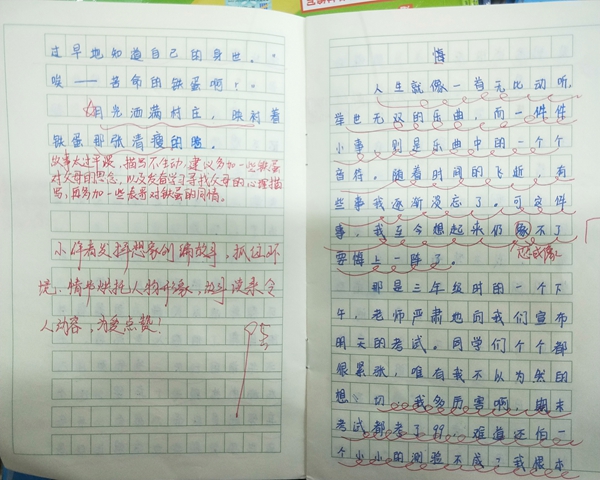 过早地知道自己的身世。
唉——苦命的铁蛋啊！
月光洒满村庄，映射着
铁蛋那张清瘦的脸。
故事太过平淡，描写不生动，建议多加一些铁蛋
对父母的思念，以及发奋学习寻找父母的心理描
写，再多加一些表弟对铁蛋的同情。
小作者发挥想象创编故事，抓住环
境、情节烘托人物形象，故事读来令
人动容，为爱点赞！
95
悔
人生就像一首无比动听，
举世无双的乐曲，而一件件
小事，则是乐曲中的一个个
音符。随着时间的飞逝，有
些事我逐渐淡忘了。可这件
事，我至今想起来仍
要悔上一阵了。
那是三年级时的一个下
午，老师严肃地向我们宣布
明天的考试。同学们个个都
很紧张，唯有我不以为然的
想：切，我多厉害啊，期末
考试都考了99，难道还怕一
个小小的测验不成？我根本